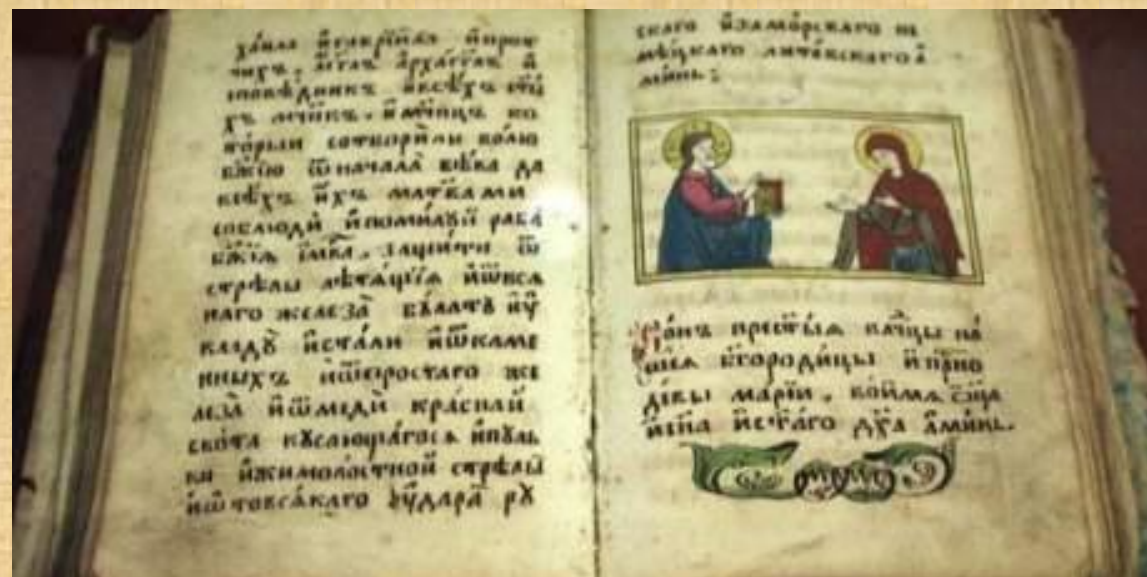 хаила и҆гаврїила и҆проч
чихъ, а҆гг҃лъ а҆рха́гг҃лъ и҆
споведникъ и҆всѣхъ ст҃ы
хъ мч҃нкъ. и҆мч҃ницъ ко
то́рыи сотвори́ли во́лю
бж҃їю ѿ нача́ла вѣ́ка да
всѣ́хъ и҆́хъ мл҃твами
соблюдѝ и҆поми́луй раба̀
бж҃їѧ і҆мк҃ъ. защити ѿ
стрѣлы летѧ́щїѧ и҆ѿвсѧ
каго желѣза̀ була́тꙋ и҆ꙋ҆
кладꙋ̀ и҆ста́ли и҆ѿкаме
нныхъ и҆ѿпростаго же
леза̀ и҆ѿмедѝ кра́сныѧ
скота кꙋса́ющагосѧ и҆пꙋль
ки и҆жимолостной стрѣлы̀
и҆ѿтовсѧ́каго ᲂу҆да́ра рꙋ
скаго и҆замо́рскаго не
мѣцкаго лито́вскаго а҆
ми́нь:
со́нъ прест҃ы́ѧ влⷣчцы на́
шеѧ бг҃оро́дицы и҆прⷭ҇но
дѣ́вы мар́їи. во и҆́мѧ ѻ҆ц҃а̀
и҆сн҃а и҆ст҃а́го дх҃а а҆ми́нь.